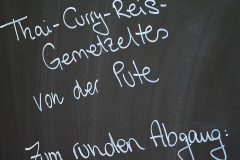 Thai-Curry-Reis-
Gemetzeltes
von der Pute
Zum runden Abgang: